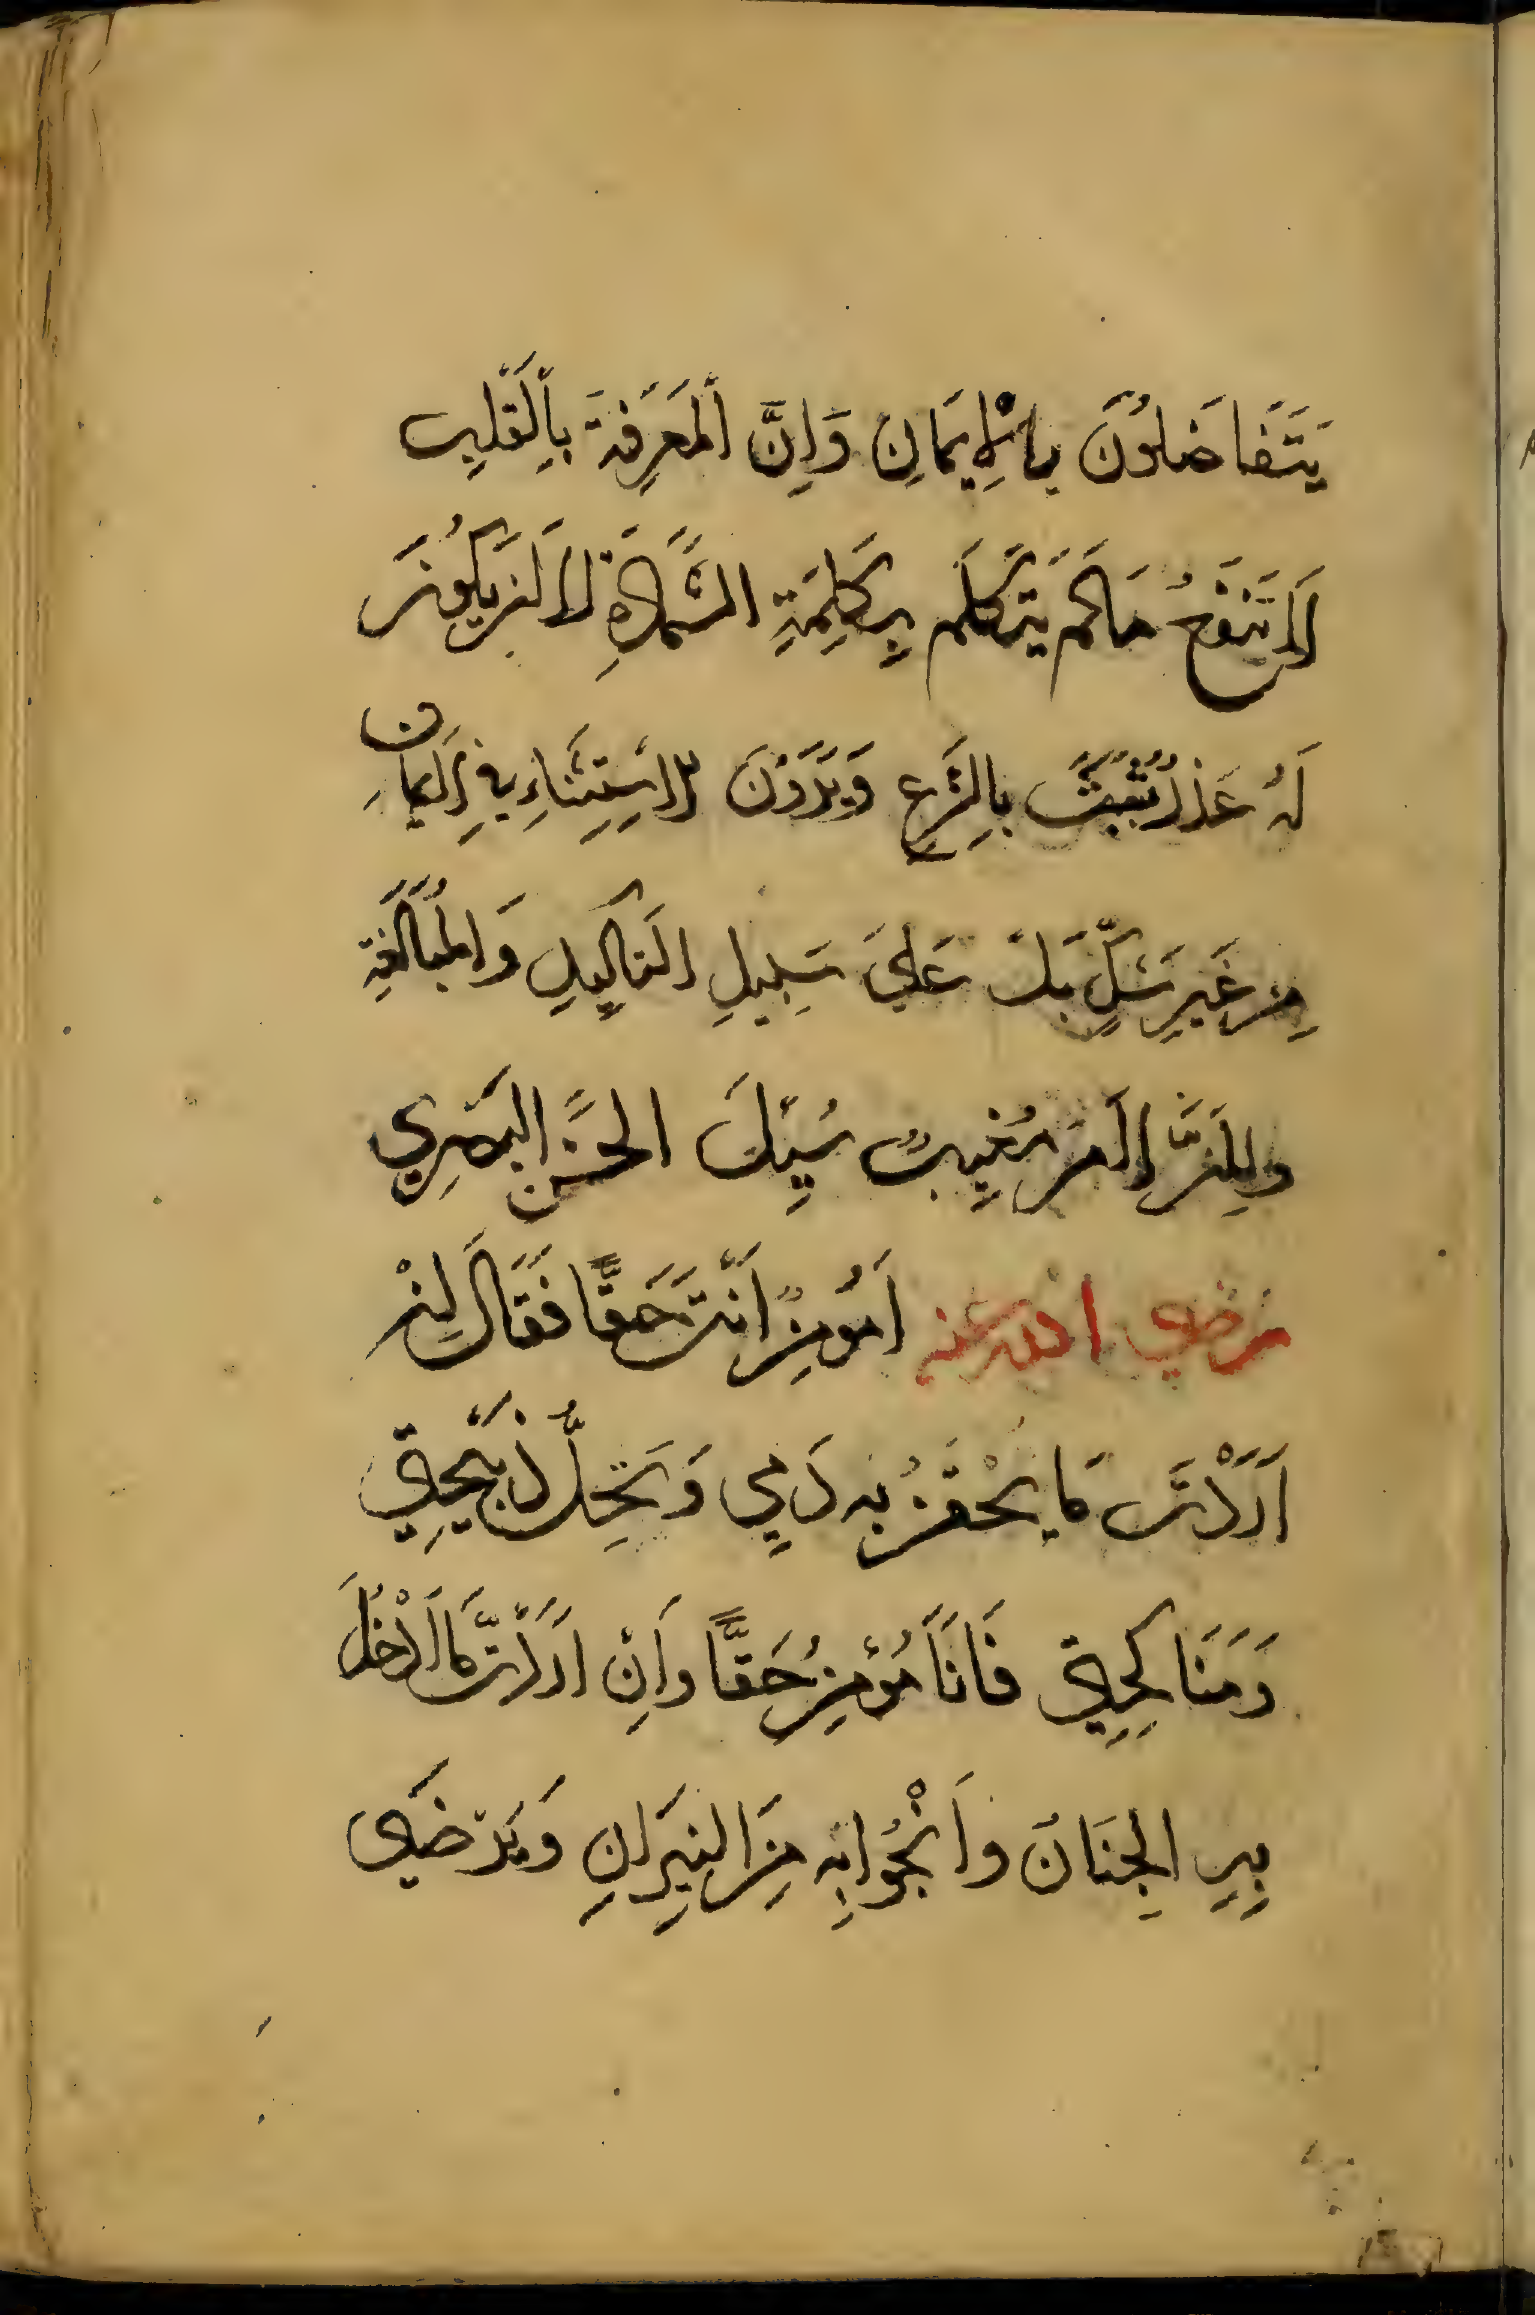 يَتَفَاضَلُونَ بِالْإِيمَانِ وَاِنَّ الْمَعرِفَةَ بِالْقَلبِ
لَا تَنفَعُ مَا لَم يَتَكَلَّم بِكَلِمَةِ الشَّهَادَةِ اِلَّا اَن يَكُونَ
لَهُ عُذرٌ يُثبتُ بِالشَّرعِ وَيَرَوْنَ الاِستِثنَاءِ فِي الاِيمَانِ
مِن غَيرِ شَكٍّ بَل عَلَى سَبِيلِ التَاكِيدِ وَالمُبَالَغَةِ
وَلِاَنَّ الاَمرَ مُغِيبٌ سُئِلَ الحَسَن البَصرِي
رضي الله عنه اَمُؤمِنٌ اَنتَ حَقًّا فَقَالَ اِنْ
اَرَدْتَ مَا يُحْقَنُ بِه دَمِي وَتَحِلُّ ذَبِيحَتِي
وَمَنَاكِحَتِي فَاَنَا مُؤمِنٌ حَقًّا وَاِنْ اَرَدْتَ مَا اَدْخُلُ
بِهِ الجِنَانَ وَاَنْجُوا بِه مِنَ النِيرَانِ وَيَرضَى